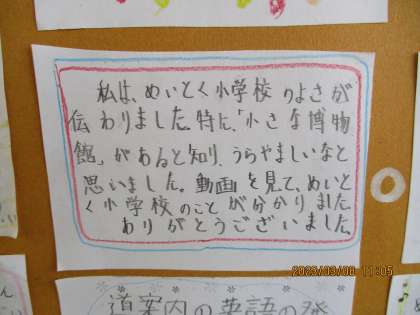 私は、めいとく小学校のよさが
伝わりました。特に、「小さな博物
館」があると知り、うらやましいなと
思いました。動画を見て、めいと
く小学校のことが分かりました
ありがとうございました。
道案内の英語の発
2023/03/08 11:05